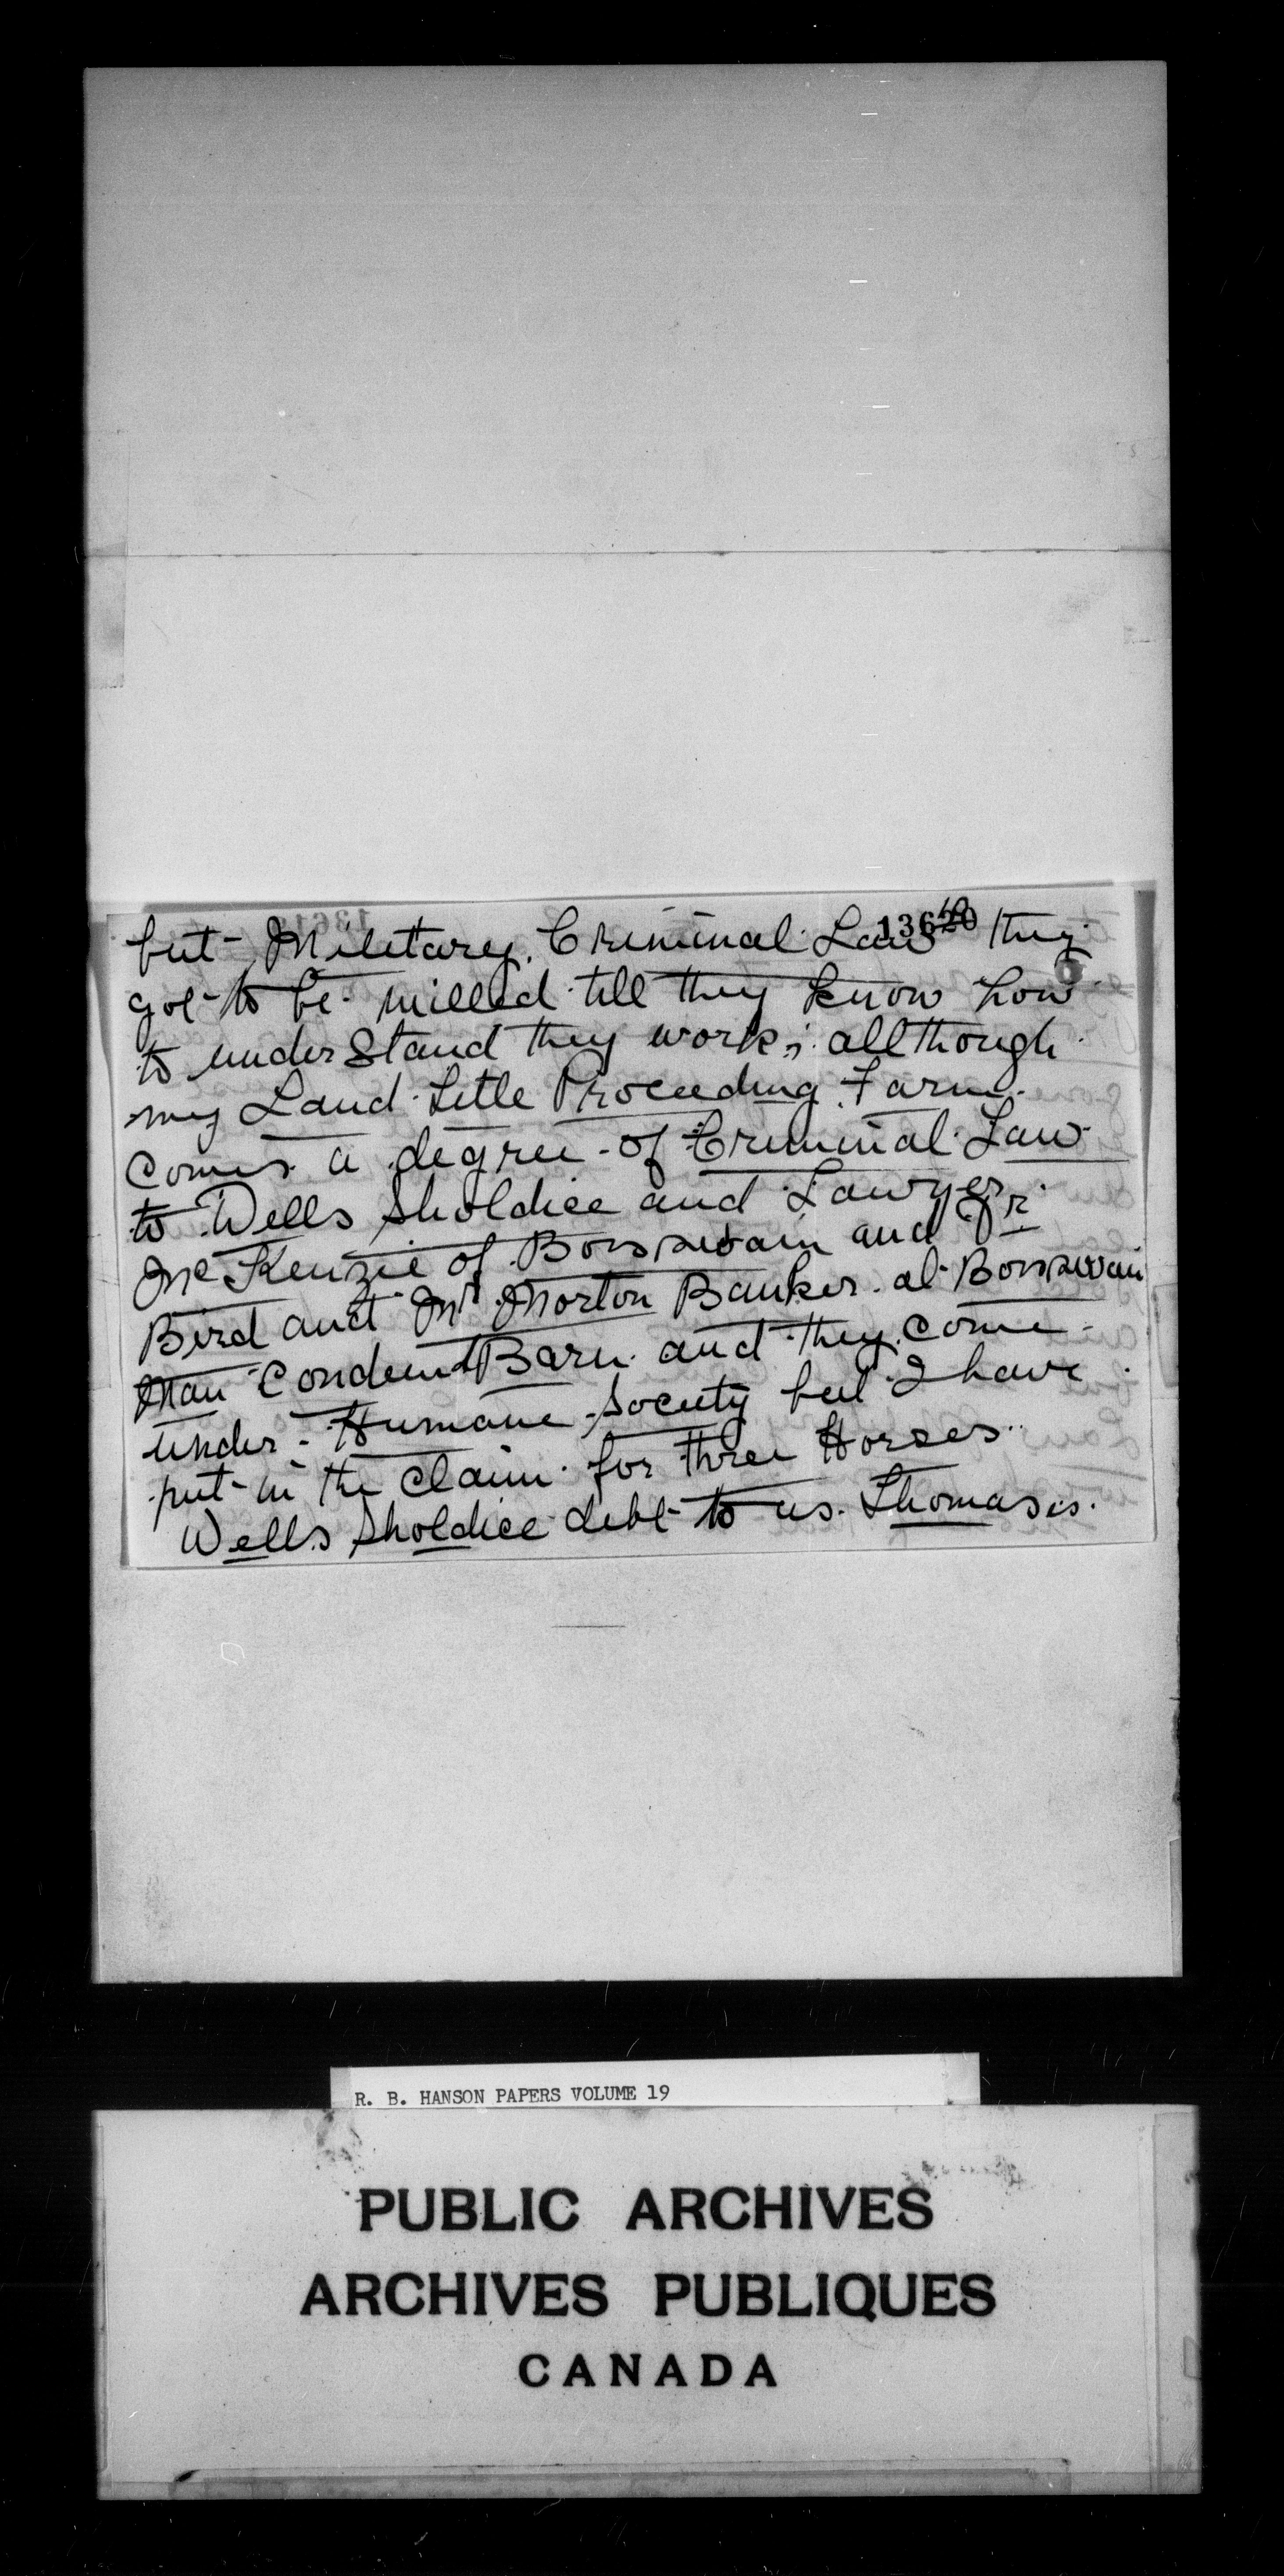 13620
but Miletary, Criminal Law they
got to be milled till they know how
to under Stand they work; allthough
my Land Litle Proceeding Farm
Comes a degree of Criminal Law
to Wells Sholdice and Lawyer
Mc Kenzie of Boissevain and
Bird and Mr Morton Banker at Boissevain
Man Condemt Barn and they come
under Humane Society but I have
put in the Claim for three Horses
Wells Sholdice debt to us. Thomases.
R. B. HANSON PAPERS VOLUME 19
PUBLIC ARCHIVES
ARCHIVES PUBLIQUES
CANADA